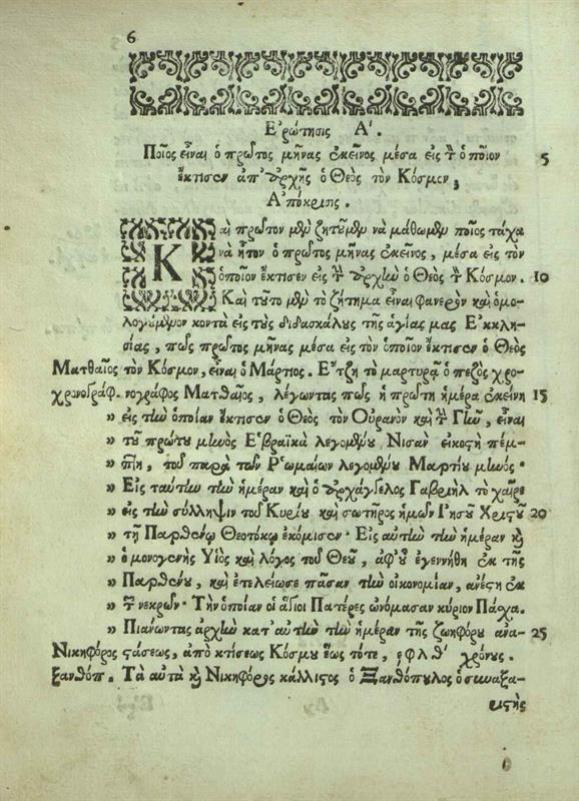 6
Ἐρώτησις Α'.
Ποῖος εἶναι ὁ πρῶτος μῆνας ἐκεῖνος μέσα εἰς τὸν ὁποῖον 5
ἔκτισεν ἀπ' ἀρχῆς ὁ Θεὸς τὸν Κόσμον;
Ἀπόκρισις.
Καὶ πρῶτον μὲν ζητοῦμεν νὰ μάθωμεν ποῖος τάχα
νὰ ἦτον ὁ πρῶτος μῆνας ἐκεῖνος, μέσα εἰς τὸν
ὁποῖον ἔκτισεν εἰς τὴν ἀρχὴν ὁ Θεὸς τὸν Κόσμον. 10
Καὶ τοῦτο μὲν τὸ ζήτημα εἶναι φανερὸν καὶ ὁμο-
λογούμενον κοντὰ εἰς τοὺς διδασκάλους τῆς ἁγίας μας Ἐκκλη-
σίας, πῶς πρῶτος μῆνας μέσα εἰς τὸν ὁποῖον ἔκτισεν ὁ Θεὸς
Ματθαῖος τὸν Κόσμον, εἶναι ὁ Μάρτιος. Ἔτζη τὸ μαρτυρᾷ ὁ πεζὸς χρο-
χρονογράφ. νογράφος Ματθαῖος, λέγωντας πῶς ἡ πρώτη ἡμέρα ἐκείνη 15
„ εἰς τὴν ὁποίαν ἔκτισεν ὁ Θεὸς τὸν Οὐρανὸν καὶ τὴν Γῆν, εἶναι
„ τοῦ πρώτου μηνὸς Ἑβραϊκὰ λεγομένου Νισὰν εἰκοστὴ πέμ-
„ πτη, τοῦ παρὰ τῶν Ῥωμαίων λεγομένου Μαρτίου μηνός.
„ Εἰς ταύτην τὴν ἡμέραν καὶ ὁ ἀρχάγγελος Γαβριὴλ τὸ χαῖρε
„ εἰς τὴν σύλληψιν τοῦ Κυρίου καὶ σωτῆρος ἡμῶν Ἰησοῦ Χριστοῦ 20
„ τῇ Παρθένῳ Θεοτόκῳ ἐκόμισεν· Εἰς αὐτὴν τὴν ἡμέραν καὶ
„ ὁ μονογενὴς Υἱὸς καὶ λόγος τοῦ Θεοῦ, ἀφ' οὗ ἐγεννήθη ἐκ τῆς
„ Παρθένου, καὶ ἐτελείωσε πᾶσαν τὴν οἰκονομίαν, ἀνέστη ἐκ
„ τῶν νεκρῶν· Τὴν ὁποίαν οἱ ἅγιοι Πατέρες ὠνόμασαν κύριον Πάσχα.
„ Πιάνωντας ἀρχὴν κατ' αὐτὴν τὴν ἡμέραν τῆς ζωηφόρου ἀνα- 25
Νικηφόρος στάσεως, ἀπὸ κτίσεως Κόσμου ἕως τότε, ͵εφλθ' χρόνους.
ξανθόπ. Τὰ αὐτὰ καὶ Νικηφόρος κάλλιστος ὁ Ξανθόπουλος ὁ συναξα-
ριστὴς